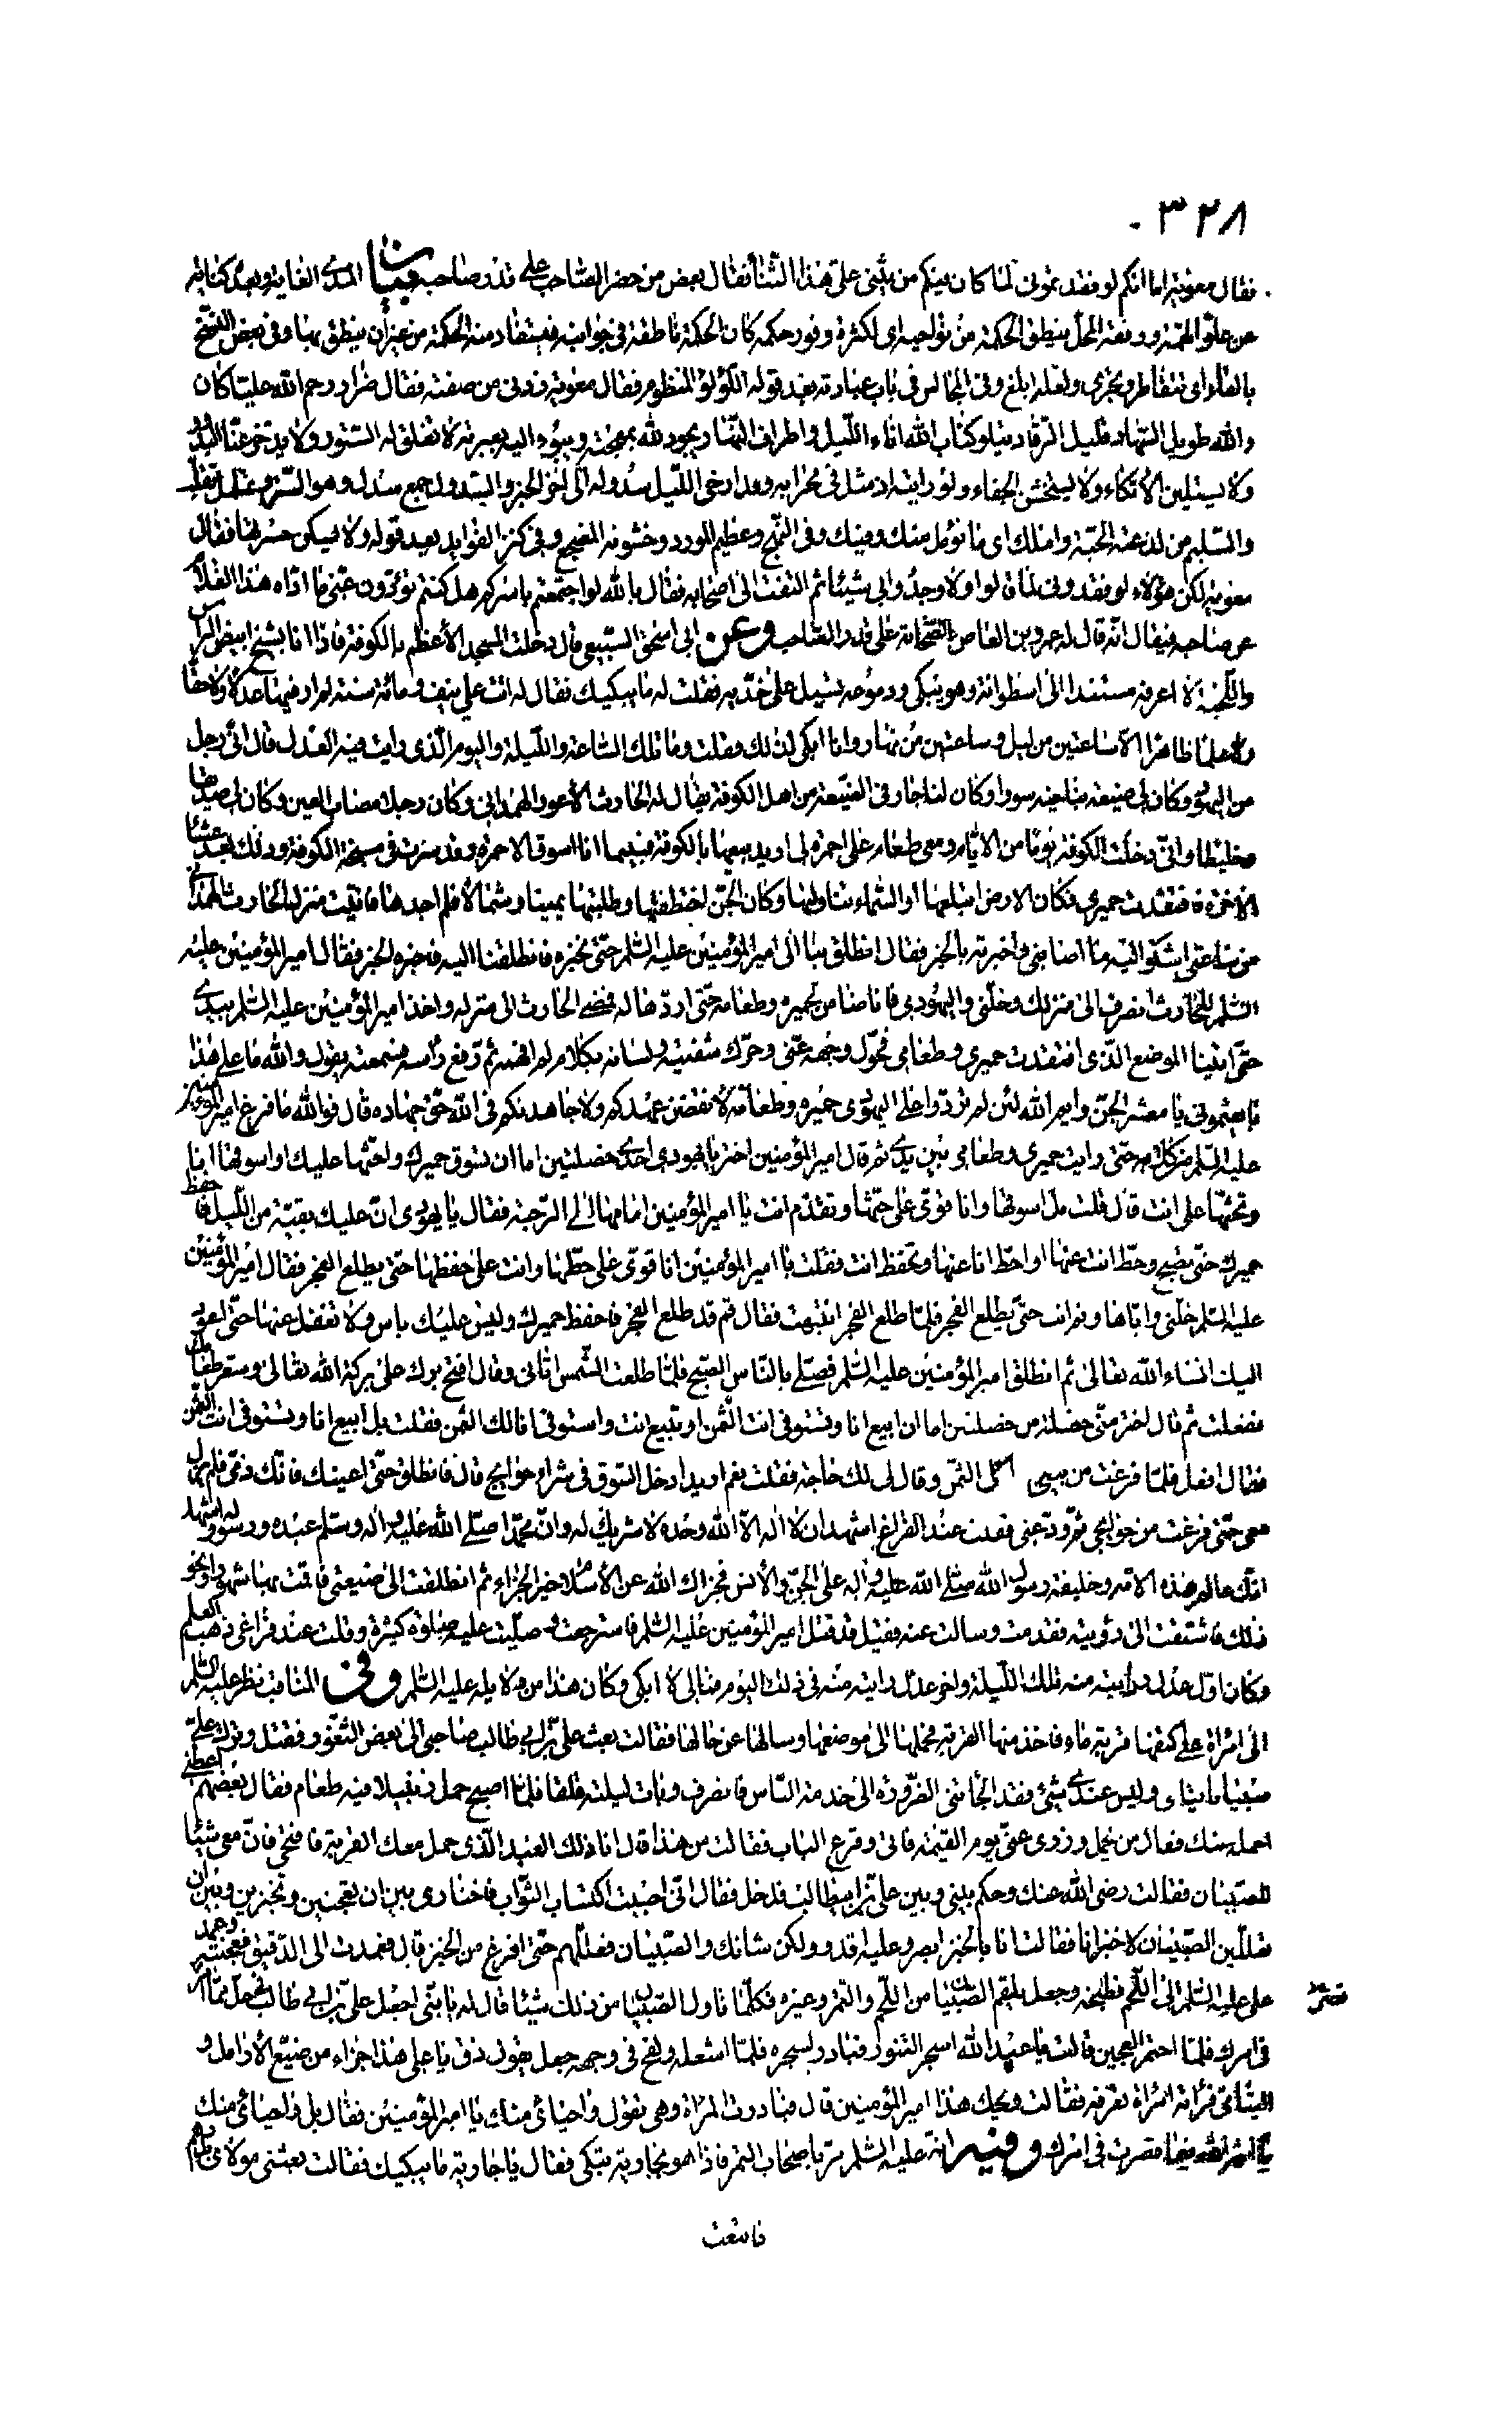 ٣٢٨
فقال معوية اما انكم لو فقدتموني لما كان فيكم من يثني علي هذا الثناء فقال بعض من حضر الصاحب على قدر صاحبه بيان المدى الغاية وبعده كناية
عن علو الهمة ورفعة المحل ينطق الحكمة من نواحيه اى لكثرة وفور حكمه كان الحكمة ناطقة في جوانبه فيستفاد منه الحكمة من غير ان ينطق بها وفي بعض النسخ
بالفاء اى تتقاطر وتجرى ولعله ابلغ وفي المجالس في باب عبادته بعد قوله اللؤلؤ المنظوم فقال معوية زدني من صفته فقال ضرار رحم الله عليا كان
والله طويل السهاد قليل الرقاد يتلو كتاب الله اناء الليل واطراف النهار يجود لله بمهجته ويبوء اليه بعبرته لا تغلق له الستور ولا يدخر عنا البدور
ولا يستلين الاتكاء ولا يستخشن الجفاء ولو رايته اذ مثل في محرابه وقد ارخى الليل سدوله الى اخر الخبر والسدول جمع سدل وهو الستر
والسليم من لدغته الحية واملك اى ما نؤمل منك وفيك وفي النهج وعظيم المورد وخشونة المضجع وفي كنز الفوايد بعد قوله ولا يسكن حزنها فقال
معوية لكن هؤلاء لو فقدوني لما قالوا ولا وجدوا بي شيئا ثم التفت الى اصحابه فقال بالله لو اجتمعتم باسركم هل كنتم تؤدون عني ما اداه هذا الغلام
عن صاحبه فيقال انه قال له عمرو بن العاص الصحابة على قدر الصاحب وعن ابي اسحق السبيعي قال دخلت المسجد الاعظم بالكوفة فاذا انا بشيخ ابيض الراس
واللحية لا اعرفه مستندا الى اسطوانة وهو يبكي ودموعه تسيل على خديه فقلت له ما يبكيك فقال له اتت علي نيف ومائة سنة لم ار فيها عدلا ولا حقا
ولا علما ظاهرا الا ساعتين من ليل وساعتين من نهار وانا ابكي لذلك فقلت وما تلك الساعة والليلة واليوم الذى رايت فيه العدل قال اني رجل
من اليهود وكان لي ضيعة بناحية سورا وكان لنا جار في الضيعة من اهل الكوفة يقال له الحارث الاعور الهمداني وكان رجلا مصاب العين وكان لي صديقا
خليطا واني دخلت الكوفة يوما من الايام ومعي طعام على احمرة لي اريد بيعها بالكوفة فبينما انا اسوق الاحمرة وقد صرت في سبخة الكوفة وذلك بعد عشاء
الاخرة فافتقدت حميري فكان الارض ابتلعتها او السماء تناولتها وكان الجن اختطفتها وطلبتها يمينا وشمالا فلم اجدها فاتيت منزل الحارث الهمداني
من ساعتي اشكو اليه ما اصابني واخبرته بالخبر فقال انطلق بنا الى امير المؤمنين عليه السلم حتى نخبره فانطلقنا اليه فاخبره الخبر فقال امير المؤمنين عليه
السلم للحارث انصرف الى منزلك وخلني واليهودي فانا ضامن لحميره وطعامه حتى اردها له فمضى الحارث الى منزله واخذ امير المؤمنين عليه السلم بيدى
حتى اتينا الموضع الذى افتقدت حميري وطعامي فحول وجهه عني وحرك شفتيه ولسانه بكلام لم افهمه ثم رفع راسه فسمعته يقول والله ما على هذا
بايعتموني يا معشر الجن وايم الله لئن لم تردوا على اليهودى حميره وطعامه لانقضن عهدكم ولاجاهدنكم في الله حق جهاده قال فوالله ما فرغ امير المؤمنين
عليه السلم من كلامه حتى رايت حميري وطعامي بين يدى ثم قال امير المؤمنين اختر يا يهودى احدى خصلتين اما ان تسوق حميرك واحثها عليك او اسوقها انا
وتحثها علي انت قال قلت بل اسوقها وانا قوى على حثها وتقدم انت يا امير المؤمنين امامها الى الرحبة فقال يا يهودى ان عليك بقية من الليل فاحفظ
حميرك حتى تصبح وحط انت عنها او احط انا عنها وتحفظ انت فقلت يا امير المؤمنين انا قوى على حطها وانت على حفظها حتى يطلع الفجر فقال امير المؤمنين
عليه السلم خلني واياها ونم انت حتى يطلع الفجر فلما طلع الفجر انتبهت فقال قم قد طلع الفجر فاحفظ حميرك وليس عليك باس ولا تغفل عنها حتى اعود
اليك انشاء الله تعالى ثم انطلق امير المؤمنين عليه السلم فصلى بالناس الصبح فلما طلعت الشمس اتاني وقال افتح برك على بركة الله تعالى وسعر طعامك
ففعلت ثم قال اختر مني خصلة من خصلتين اما ان ابيع انا وتستوفي انت الثمن او تبيع انت واستوفي انا لك الثمن فقلت بل ابيع انا وتستوفي انت الثمن
فقال افعل فلما فرغت من بيعي الثمن وقال لي لك حاجة فقلت نعم اريد ادخل السوق في شراء حوايج قال فانطلق حتى اعينك فانك ذمي فلم يزل
معي حتى فرغت من حوايجي ثم ودعني فقلت عند الفراغ اشهد ان لا اله الا الله وحده لا شريك له وان محمدا صلى الله عليه واله وسلم عبده ورسوله واشهد
انك عالم هذه الامة وخليفة رسول الله صلى الله عليه واله على الجن والانس فجزاك الله عن الاسلام خير الجزاء ثم انطلقت الى ضيعتي فاقمت بها شهورا ونحو
ذلك فاشتقت الى رؤيته فقدمت وسالت عنه فقيل قد قتل امير المؤمنين عليه السلم فاسترجعت وصليت عليه صلوة كثيرة وقلت عند فراغي ذهب العلم
وكان اول عدل رايته منه تلك الليلة واخر عدل رايته منه في ذلك اليوم فمالي لا ابكي وكان هذا من دلايله عليه السلم وفي المناقب نظر علي عليه السلم
الى امراة على كتفها قربة ماء فاخذ منها القربة فحملها الى موضعها وسالها عن حالها فقالت بعث علي بن ابي طالب صاحبي الى بعض الثغور فقتل وترك علي
صبيانا يتامى وليس عندى شيء فقد الجاتني الضرورة الى خدمة الناس فانصرف وبات ليلته قلقا فلما اصبح حمل زنبيلا فيه طعام فقال بعضهم اعطني
احمله عنك فقال من يحمل وزرى عني يوم القيمة فاتى وقرع الباب فقالت من هذا قال انا ذلك العبد الذى حمل معك القربة فافتحي فان معي شيئا
للصبيان فقالت رضى الله عنك وحكم بيني وبين علي بن ابيطالب فدخل فقال اني احببت اكتساب الثواب فاختارى بين ان تعجنين وتخبزين وبين ان
تعللين الصبيان لاخبز انا فقالت انا بالخبز ابصر وعليه اقدر ولكن شانك والصبيان فعللهم حتى افرغ من الخبز قال فعمدت الى الدقيق فعجنته وعمد
علي عليه السلم الى اللحم فطبخه وجعل يلقم الصبيان من اللحم والتمر وغيره فكلما ناول الصبيان من ذلك شيئا قال له يا بني اجعل علي بن ابي طالب في حل مما امر
في امرك فلما اختمر العجين قالت يا عبد الله اسجر التنور فبادر لسجره فلما اشعله ولفح في وجهه جعل يقول ذق يا علي هذا جزاء من ضيع الارامل و
اليتامى فراته امراة تعرفه فقالت ويحك هذا امير المؤمنين قال فبادرت المراة وهي تقول واحيائي منك يا امير المؤمنين فقال بل واحيائي منك
يا امة الله فيما قصرت في امرك وفيه انه عليه السلم مر باصحاب التمر فاذا هو بجارية تبكي فقال يا جارية ما يبكيك فقالت بعثني مولاى بدرهم
فابتعت